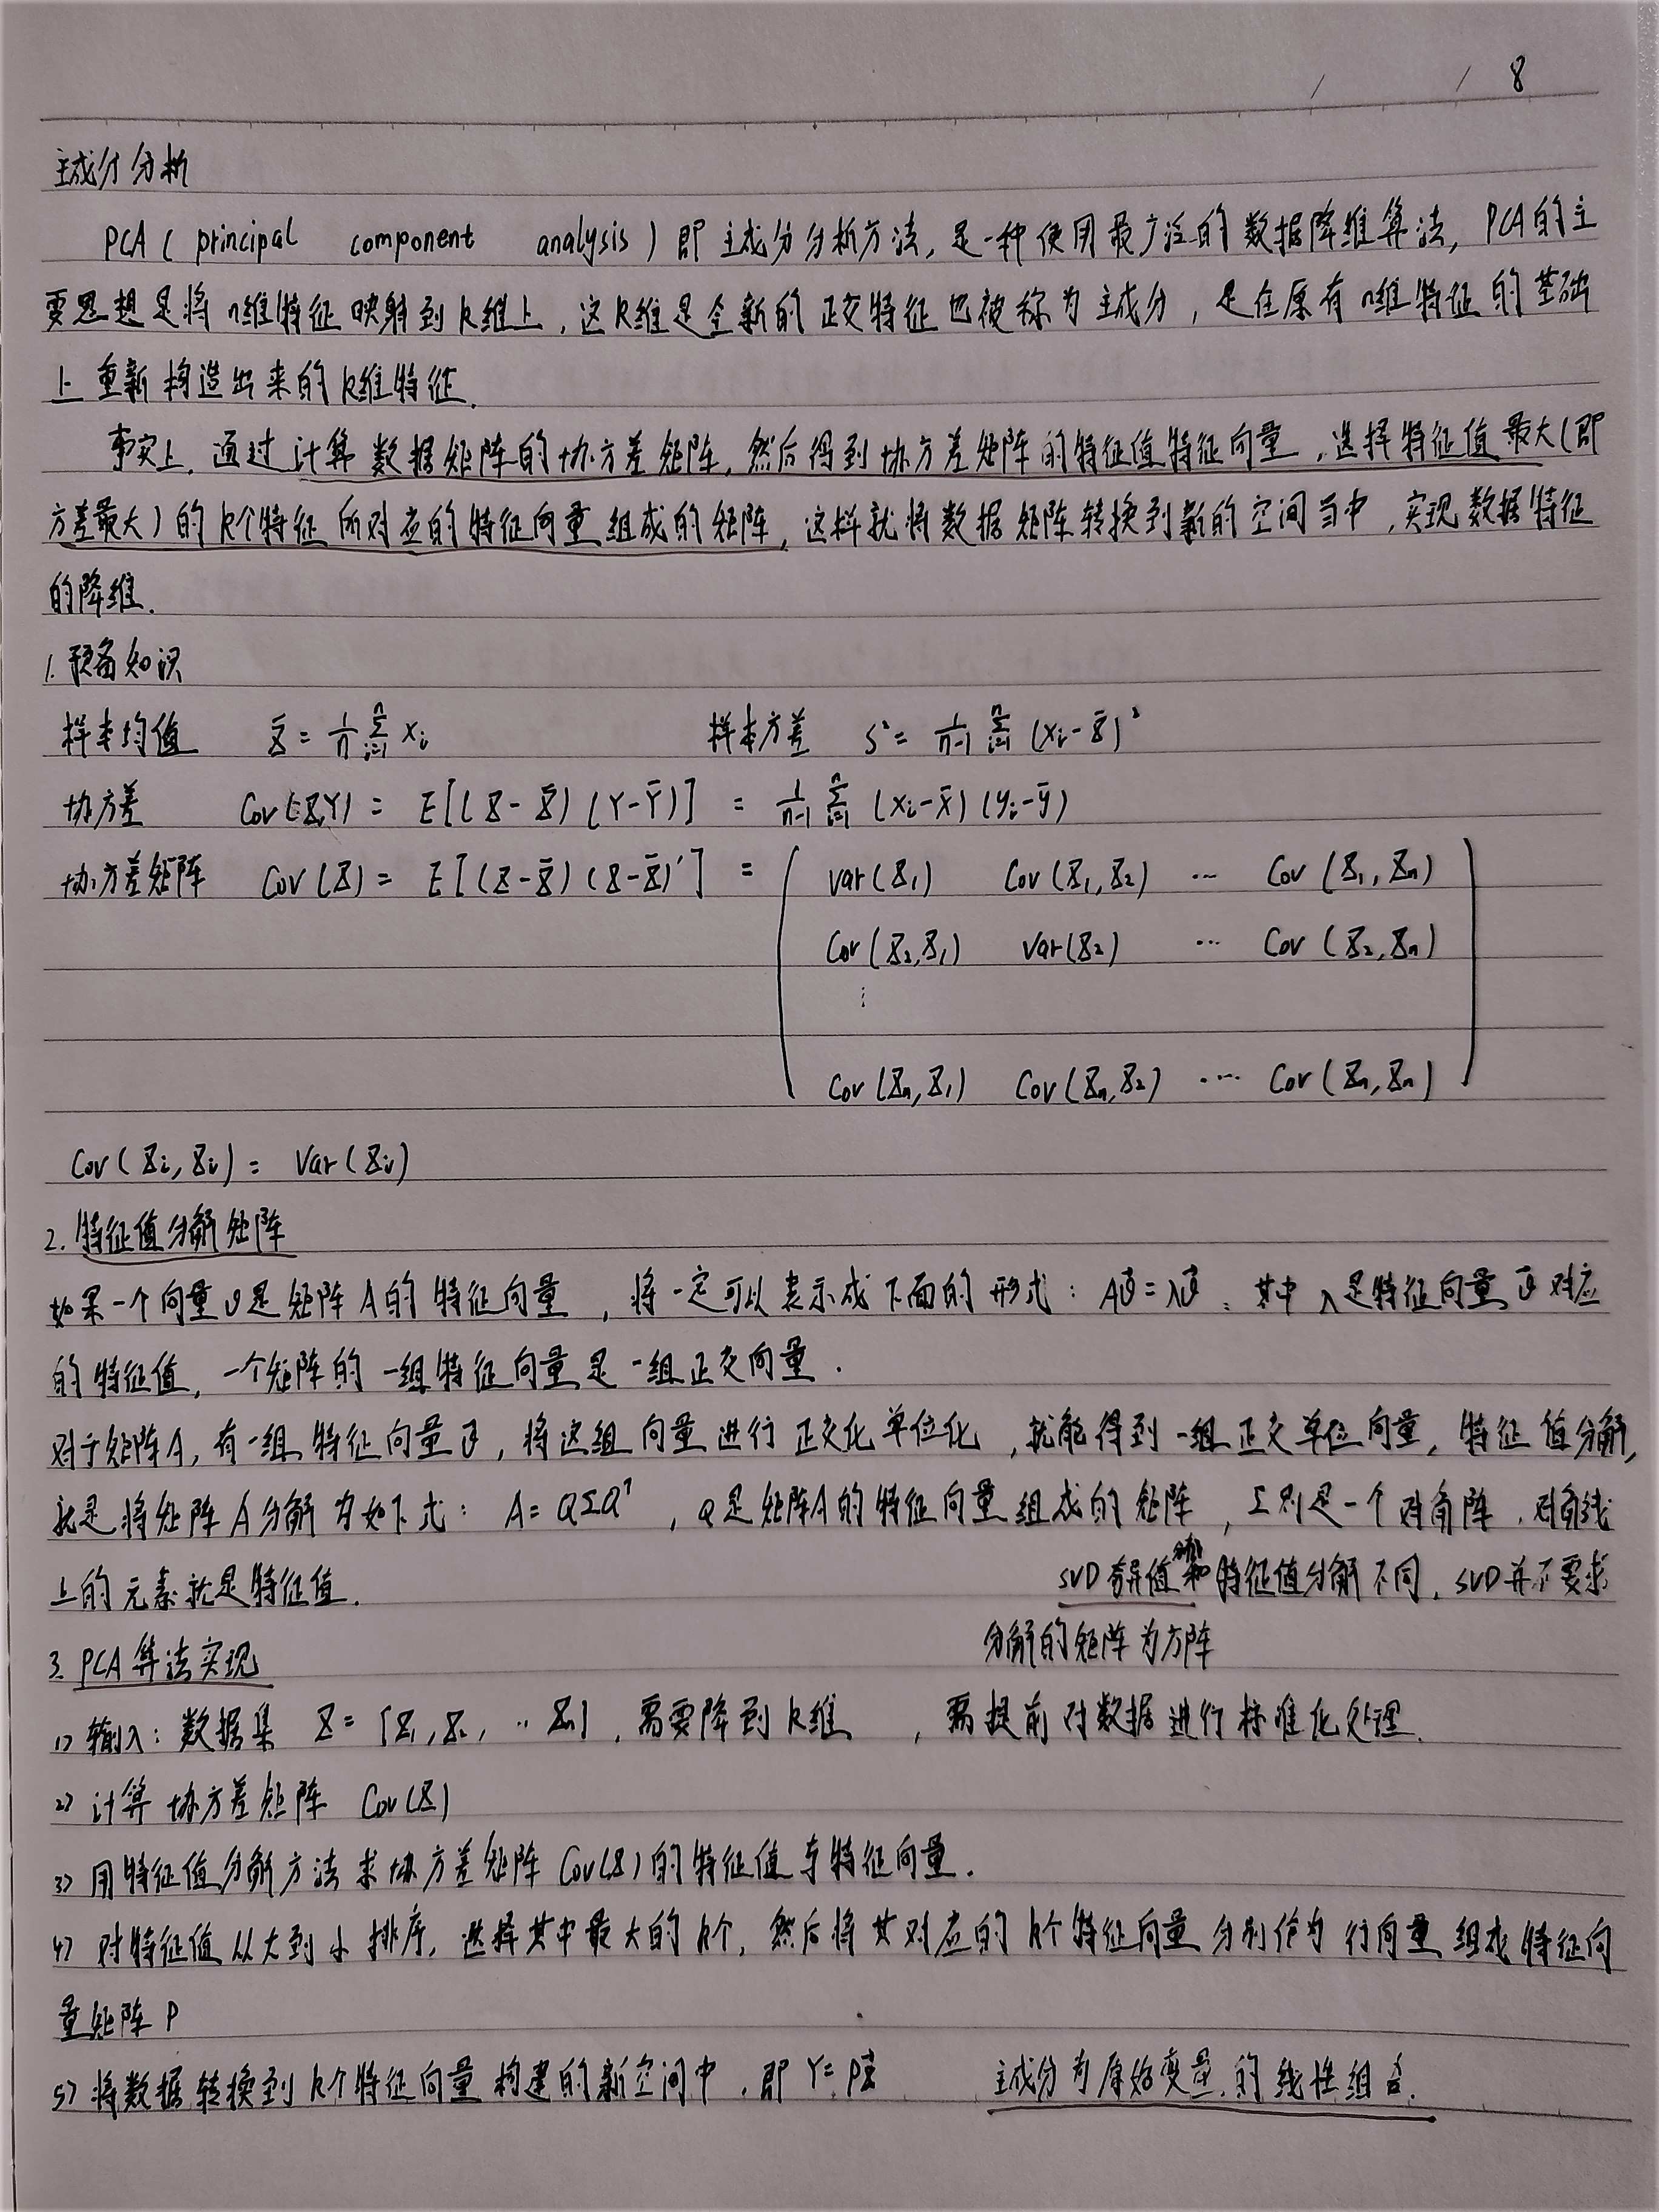 8
主成分分析
PCA( principal component analysis ) 即主成分分析方法, 是一种使用最广泛的数据降维算法, PCA的主
要思想是将n维特征映射到k维上, 这k维是全新的正交特征也被称为主成分, 是在原有n维特征的基础
上重新构造出来的k维特征.
事实上, 通过计算数据矩阵的协方差矩阵, 然后得到协方差矩阵的特征值特征向量, 选择特征值最大(即
方差最大)的k个特征所对应的特征向量组成的矩阵, 这样就将数据矩阵转换到新的空间当中, 实现数据特征
的降维.
1. 预备知识
样本均值 X̄ = 1/n Σ_{i=1}^{n} xᵢ 样本方差 S² = 1/(n-1) Σ_{i=1}^{n} (xᵢ-X̄)²
协方差 Cov(X,Y) = E[(X-X̄)(Y-Ȳ)] = 1/(n-1) Σ_{i=1}^{n} (xᵢ-x̄)(yᵢ-ȳ)
协方差矩阵 Cov(X) = E[(X-X̄)(X-X̄)'] = ( Var(X₁) Cov(X₁,X₂) … Cov(X₁,Xₙ)
Cov(X₂,X₁) Var(X₂) … Cov(X₂,Xₙ)
⋮
Cov(Xₙ,X₁) Cov(Xₙ,X₂) … Cov(Xₙ,Xₙ) )
Cov(Xᵢ,Xᵢ) = Var(Xᵢ)
2. 特征值分解矩阵
如果一个向量v是矩阵A的特征向量, 将一定可以表示成下面的形式: Av⃗=λv⃗, 其中λ是特征向量v⃗对应
的特征值, 一个矩阵的一组特征向量是一组正交向量.
对于矩阵A, 有一组特征向量v⃗, 将这组向量进行正交化单位化, 就能得到一组正交单位向量, 特征值分解,
就是将矩阵A分解为如下式: A=QΣQ⁻¹, Q是矩阵A的特征向量组成的矩阵, Σ则是一个对角阵, 对角线
上的元素就是特征值.
SVD奇异值分解和特征值分解不同, SVD并不要求
分解的矩阵为方阵
3. PCA算法实现
1) 输入: 数据集 X=[X₁,X₂,…Xₙ], 需要降到k维, 需提前对数据进行标准化处理.
2) 计算协方差矩阵 Cov(X)
3) 用特征值分解方法求协方差矩阵Cov(X)的特征值与特征向量.
4) 对特征值从大到小排序, 选择其中最大的k个, 然后将其对应的k个特征向量分别作为行向量组成特征向
量矩阵P
5) 将数据转换到k个特征向量构建的新空间中, 即Y=PX 主成分为原始变量的线性组合.